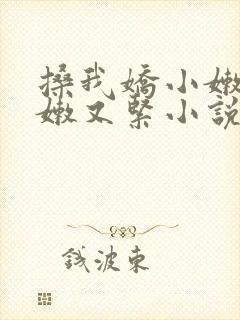 搡我嬌小嫩
嫩又緊小說
錢波東